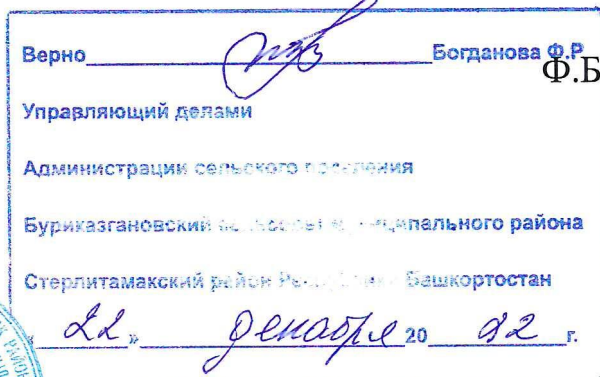 Верно Богданова Ф.Р
Ф.Б
Управляющий делами
Администрации сельского поселения
Буриказгановский сельсовет муниципального района
Стерлитамакский район Республики Башкортостан
« 22 » декабря 20 22 г.